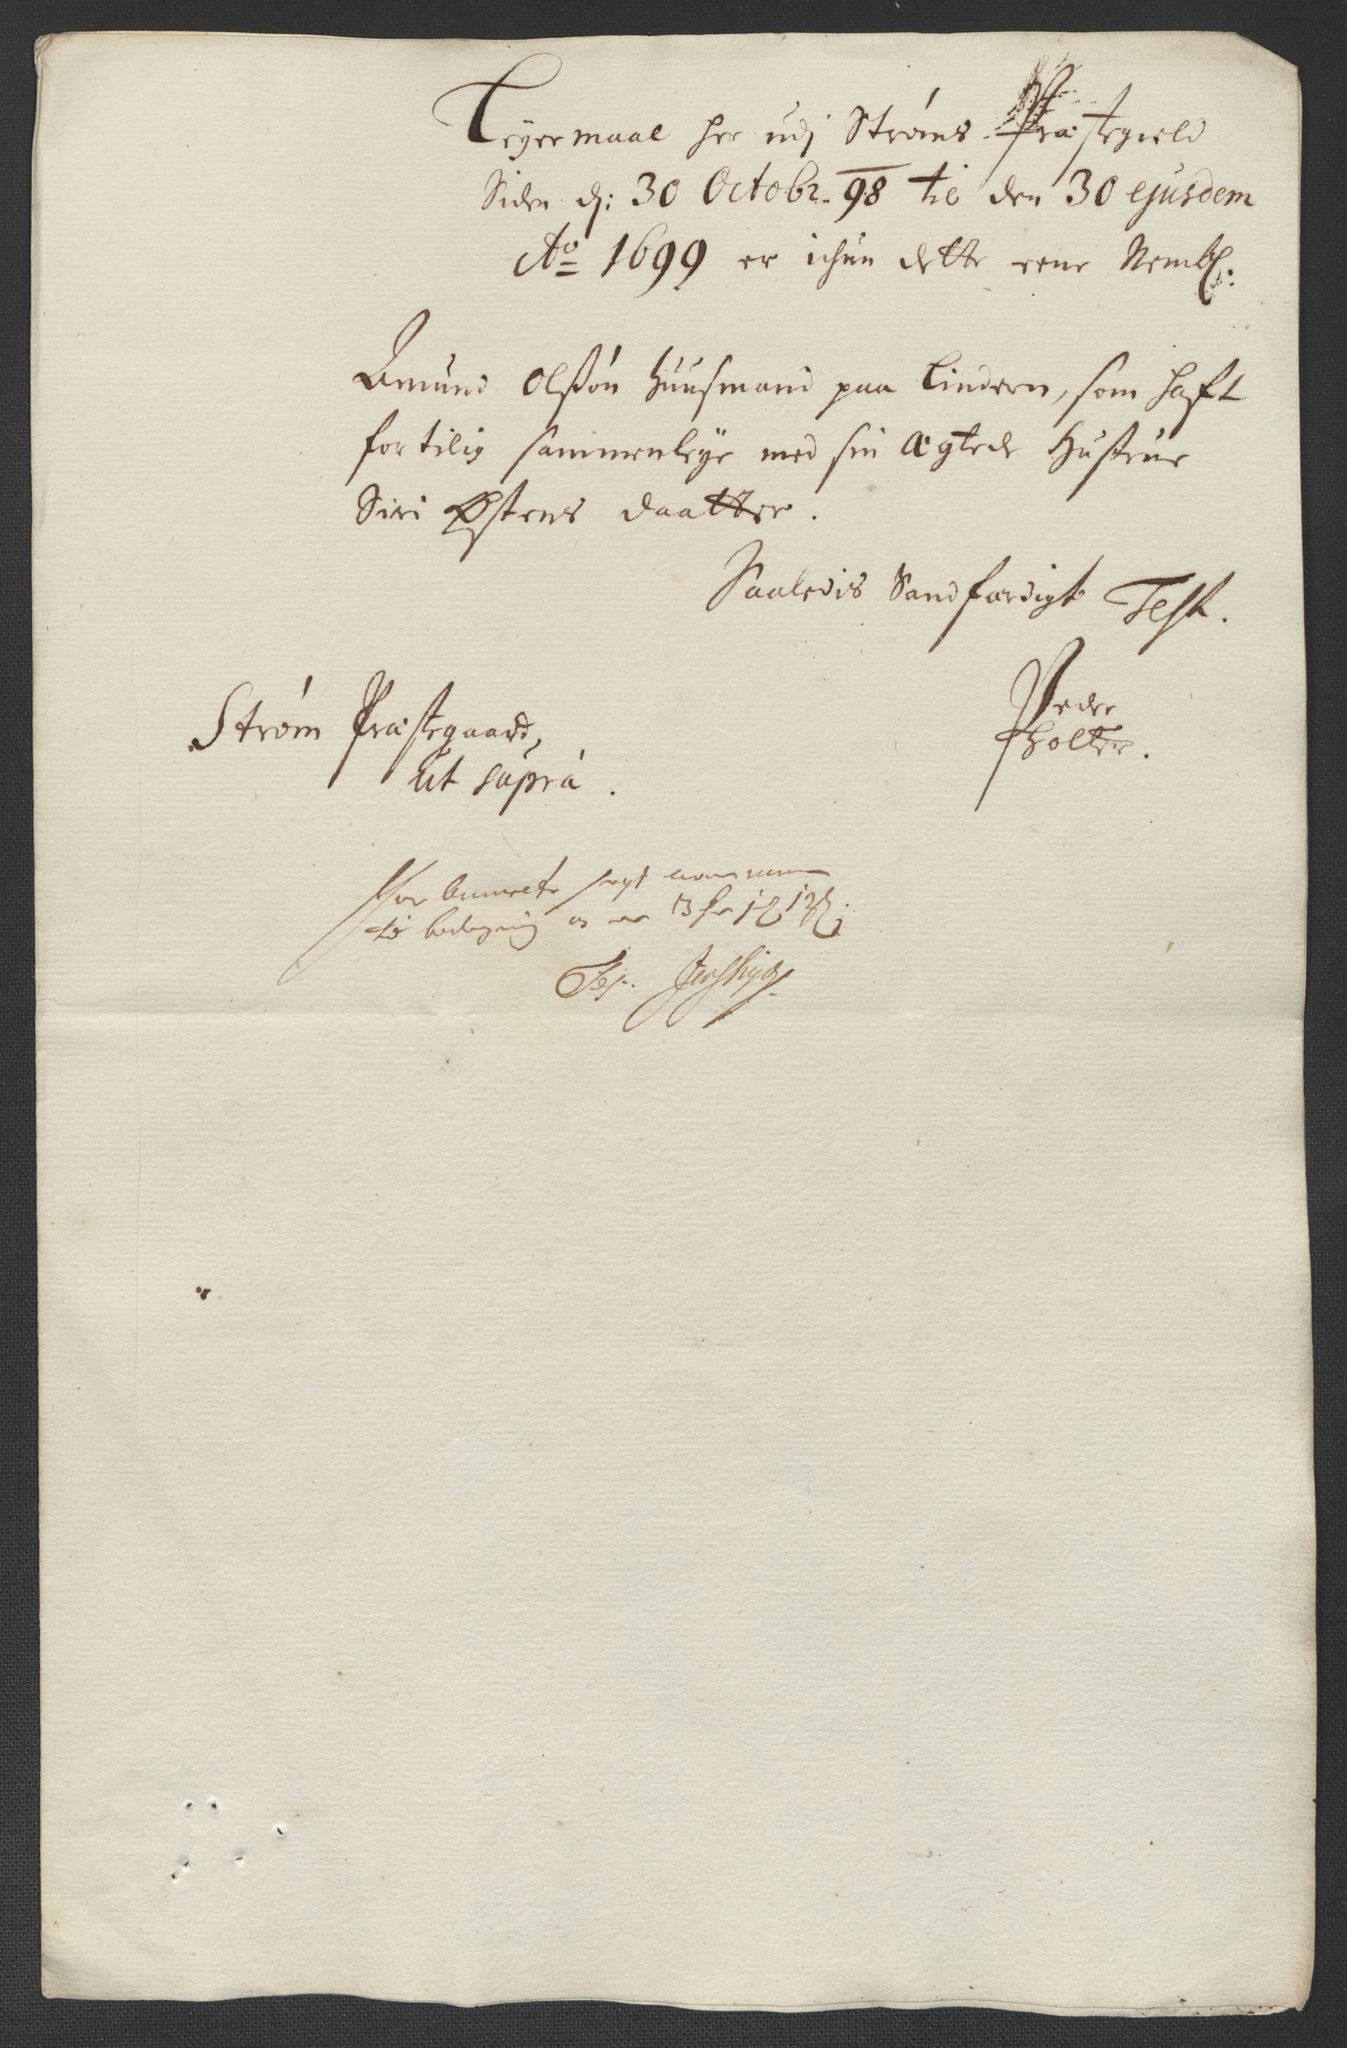 Leyermaal her udj Strøms Præstegield
Siden dj: 30 Octobr. 98 til den 30 ejusdem
Ao 1699 er ichun dette eene Nembl:
Amund Olssøn Huusmand paa Lindern, som haft
fortilig sammenleye med sin ægtede Hustrue
Siri Østens daatter.
Saaledis Sandfærdigt Test.
Strøm Præstegaard,
Ut supra.
Peder
Holter.
for
til
Test.